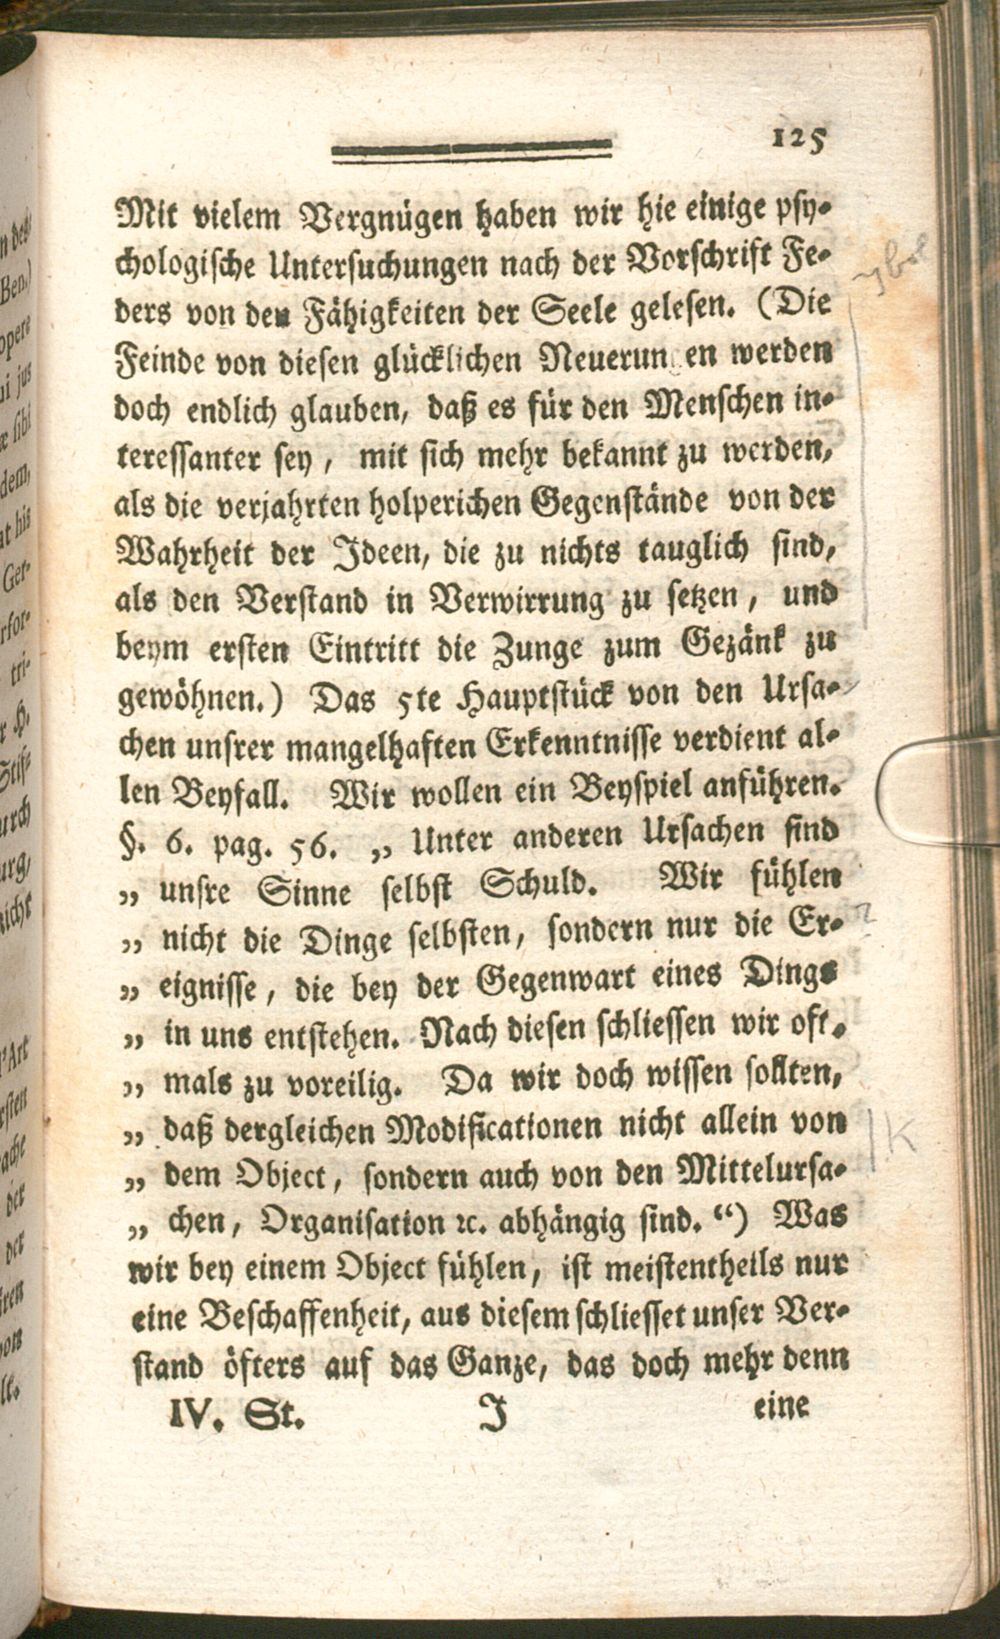 125
Mit vielem Vergnügen haben wir hie einige psy-
chologische Untersuchungen nach der Vorschrift Fe-
ders von den Fähigkeiten der Seele gelesen. (Die
Feinde von diesen glücklichen Neuerun en werden
doch endlich glauben, daß es für den Menschen in-
teressanter sey, mit sich mehr bekannt zu werden,
als die verjahrten holperichen Gegenstände von der
Wahrheit der Ideen, die zu nichts tauglich sind,
als den Verstand in Verwirrung zu setzen, und
beym ersten Eintritt die Zunge zum Gezänk zu
gewöhnen.) Das 5te Hauptstück von den Ursa-
chen unsrer mangelhaften Erkenntnisse verdient al-
len Beyfall. Wir wollen ein Beyspiel anführen.
§. 6. pag. 56. „ Unter anderen Ursachen sind
„ unsre Sinne selbst Schuld. Wir fühlen
„ nicht die Dinge selbsten, sondern nur die Er-
„ eignisse, die bey der Gegenwart eines Dings
„ in uns entstehen. Nach diesen schliessen wir oft-
„ mals zu voreilig. Da wir doch wissen sollten,
„ daß dergleichen Modificationen nicht allein von
„ dem Object, sondern auch von den Mittelursa-
„ chen, Organisation ꝛc. abhängig sind.“) Was
wir bey einem Object fühlen, ist meistentheils nur
eine Beschaffenheit, aus diesem schliesset unser Ver-
stand öfters auf das Ganze, das doch mehr denn
IV. St. J eine